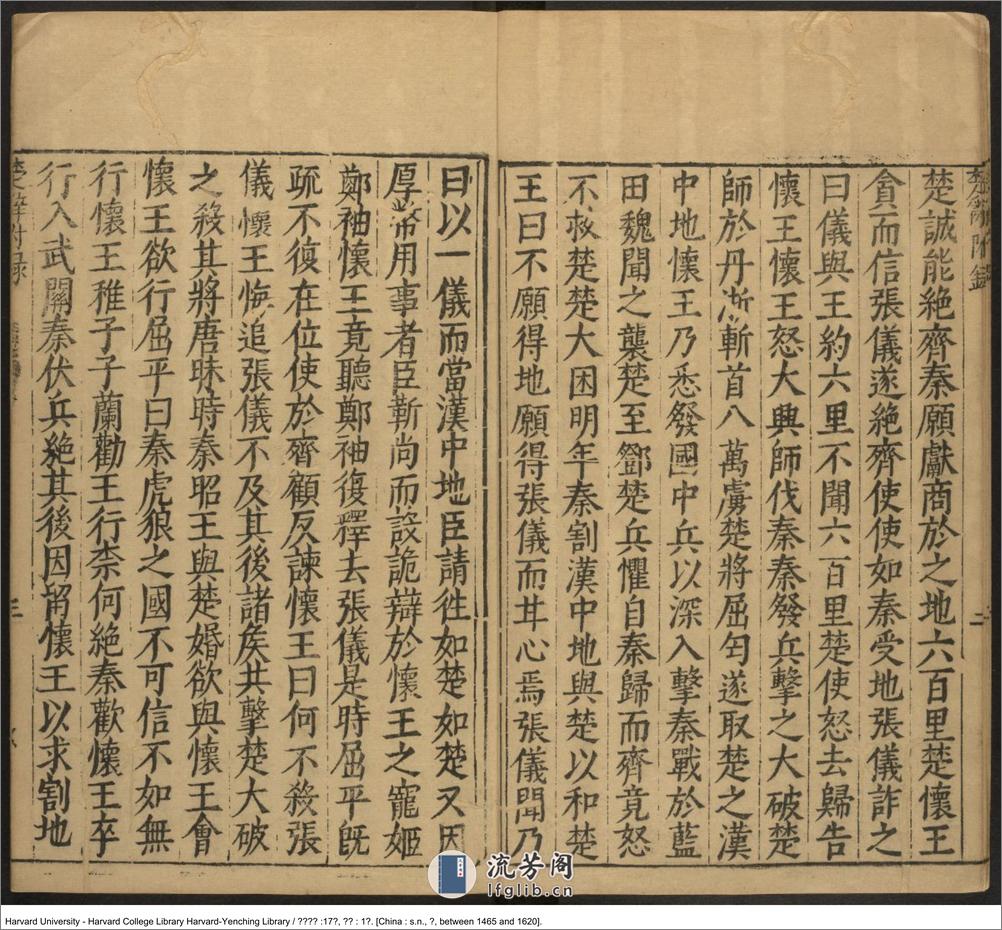 楚辭附錄
二
楚誠能絶齊秦願獻商於之地六百里楚懷王
貪而信張儀遂絶齊使使如秦受地張儀詐之
曰儀與王約六里不聞六百里楚使怒去歸告
懷王懷王怒大興師伐秦秦發兵擊之大破楚
師於丹淅斬首八萬虜楚將屈匄遂取楚之漢
中地懷王乃悉發國中兵以深入擊秦戰於藍
田魏聞之襲楚至鄧楚兵懼自秦歸而齊竟怒
不救楚楚大困明年秦割漢中地與楚以和楚
王曰不願得地願得張儀而甘心焉張儀聞乃
曰以一儀而當漢中地臣請往如楚如楚又因
厚幣用事者臣靳尚而設詭辯於懷王之寵姬
鄭袖懷王竟聽鄭袖復釋去張儀是時屈平旣
疏不復在位使於齊顧反諫懷王曰何不殺張
儀懷王悔追張儀不及其後諸侯共擊楚大破
之殺其將唐昧時秦昭王與楚婚欲與懷王會
懷王欲行屈平曰秦虎狼之國不可信不如無
行懷王稚子子蘭勸王行柰何絶秦歡懷王卒
行入武關秦伏兵絶其後因留懷王以求割地
楚辭附錄
三
流芳阁
lfglib.cn
Harvard University - Harvard College Library Harvard-Yenching Library / ???? :17?, ?? : 1?. [China : s.n., ?, between 1465 and 1620].